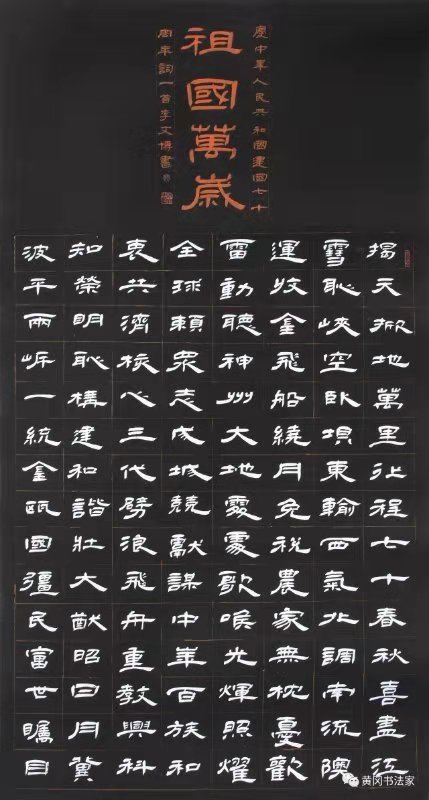 祖國萬歲
慶中華人民共和國建國七十
周年詞一首李文博書
揭天掀地萬里征程七十春秋喜盡江
雪恥峽空臥壩東輸西氣北調南流隩
運收金飛船繞月免稅農家無枕憂歡
雷動聽神州大地處處歌喉光輝照耀
全球賴眾志成城競獻謀中華百族和
衷共濟核心三代劈浪飛舟重教興科
知榮明恥構建和諧壯大猷昭日月冀
波平兩岸一統金甌國彊民富世矚目
黄冈书法家